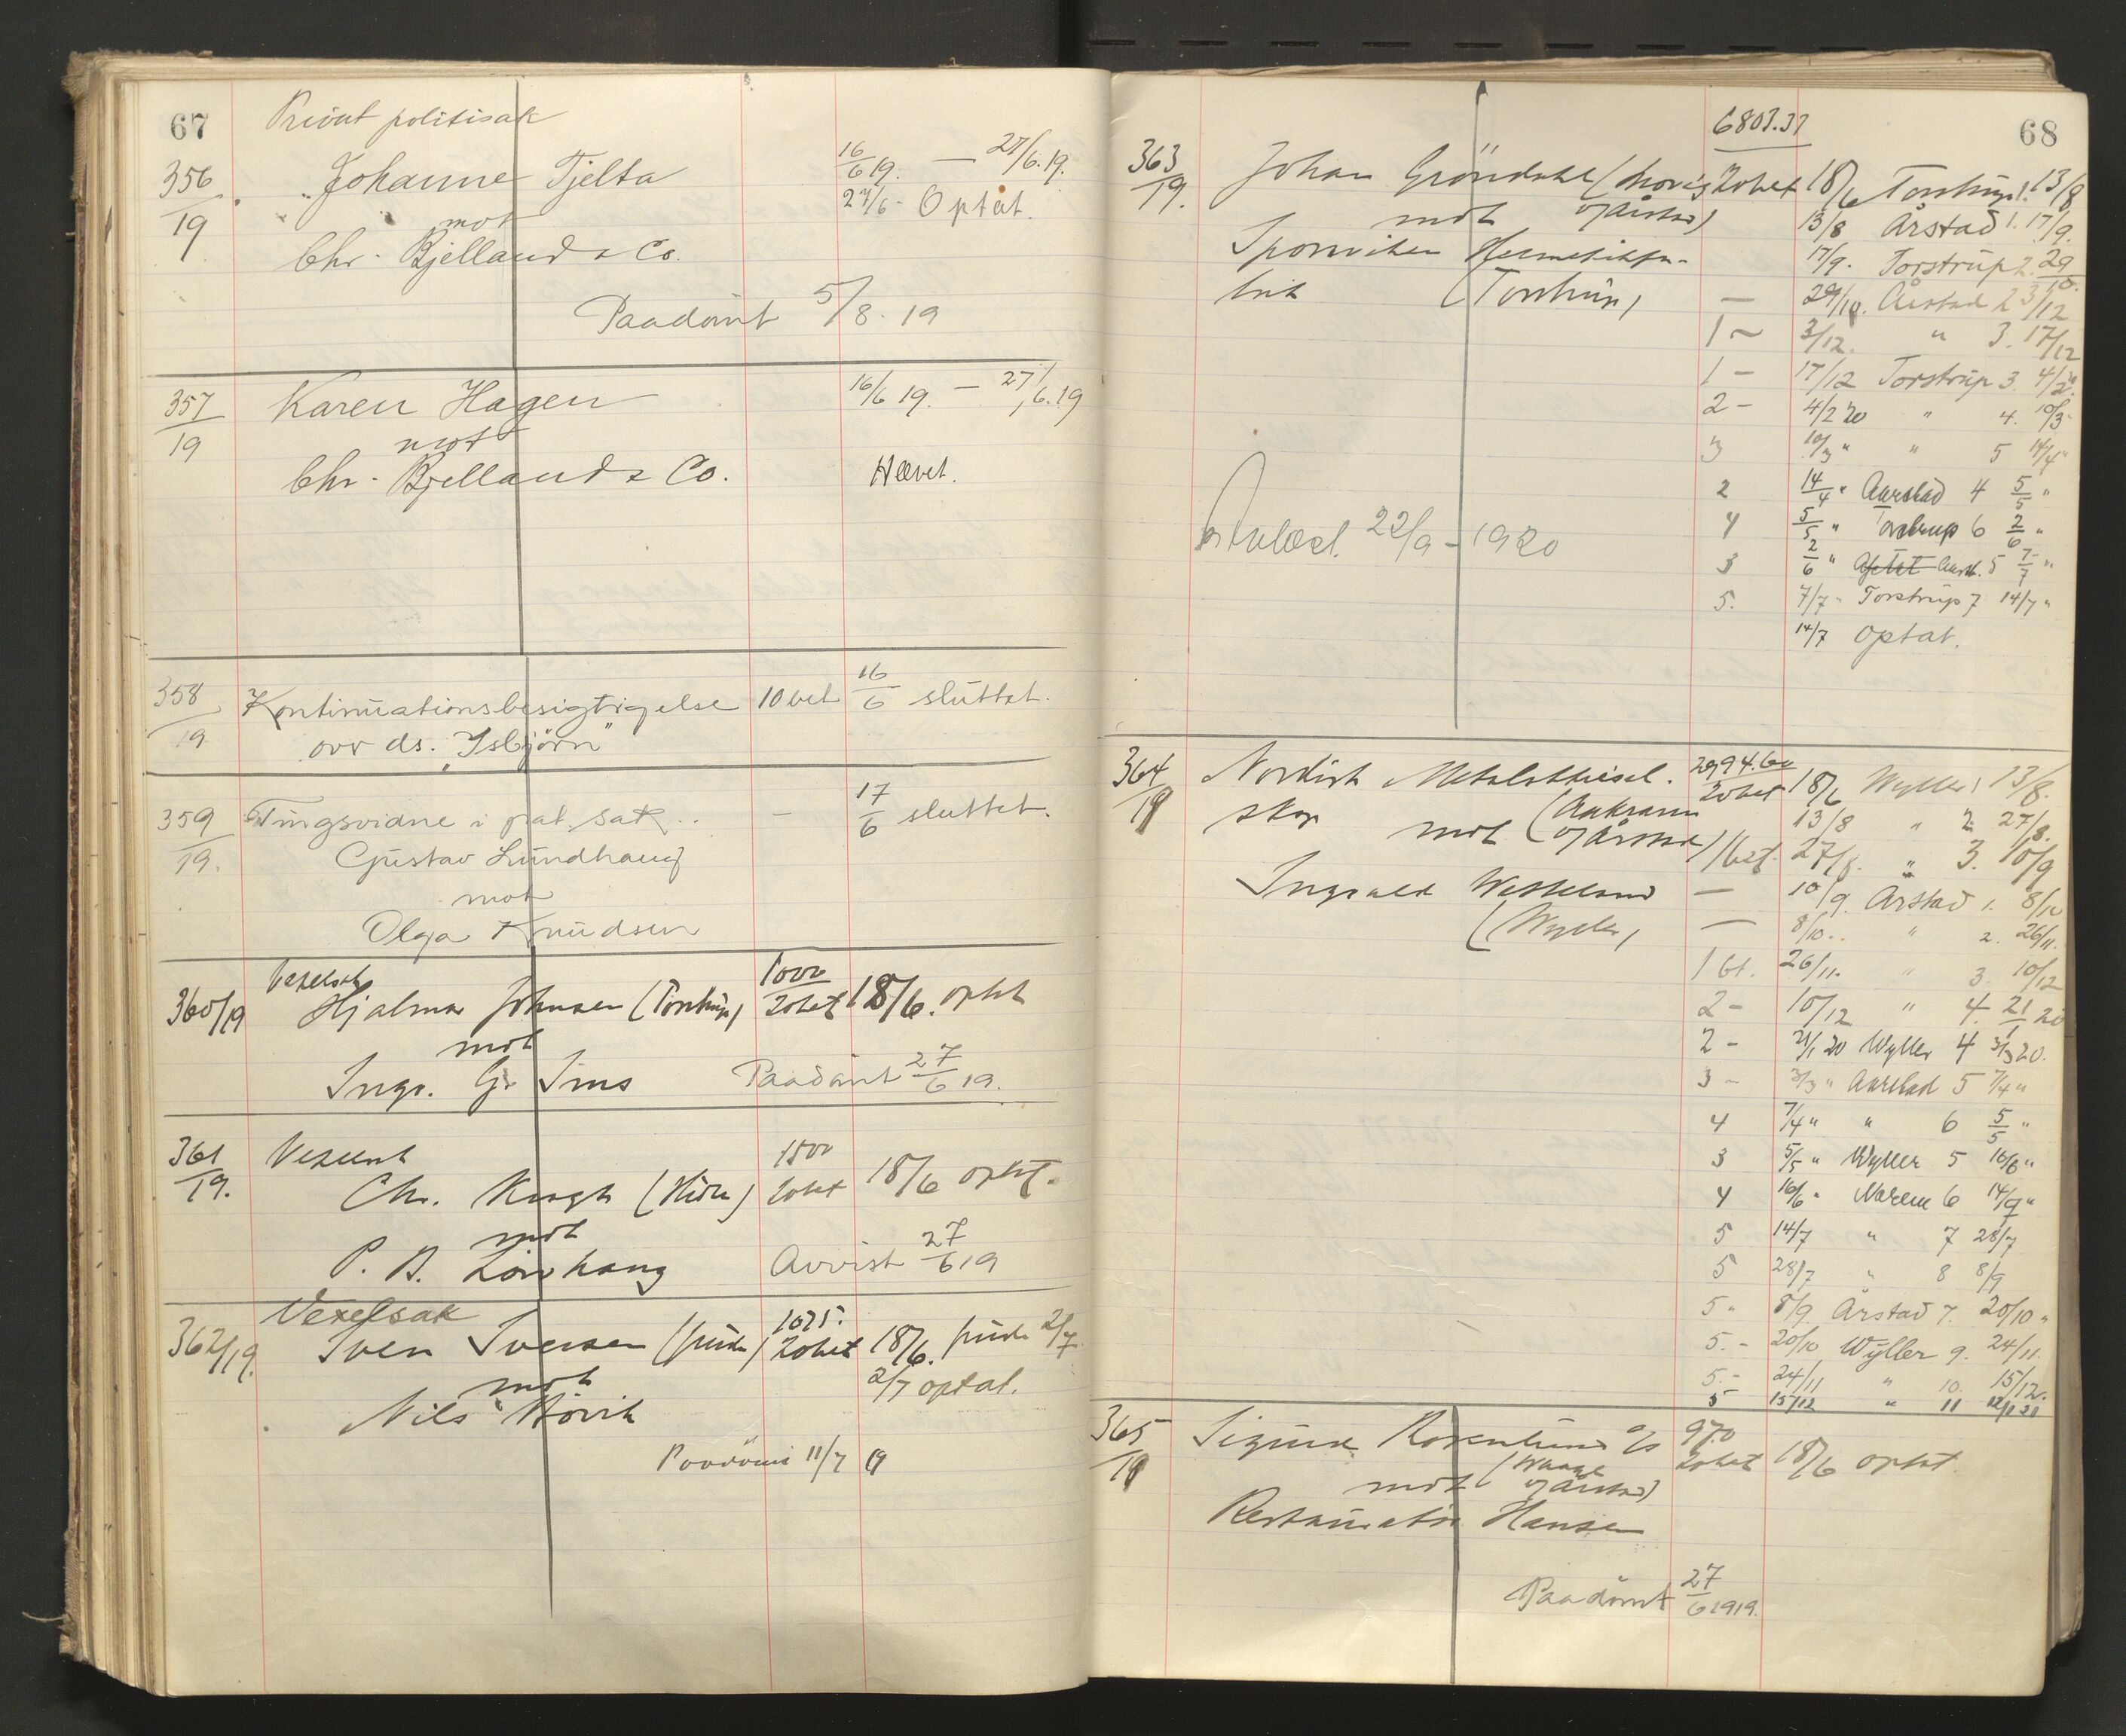 67
Privat politisak
356/19 Johanne Tjelta 16/6 19. — 27/6.19.
mot 27/6- Optat.
Chr. Bjelland & Co.
Paadömt 5/8.19
357/19 Karen Hagen 16/6 19. — 27/6.19
mot
Chr. Bjelland & Co. Hævet.
358/19 Kontinuationsbesigtigelse 10 bet 16/6 sluttet.
ovr ds. "Isbjörn"
359/19. Tingsvidne i pat. sak.. — 17/6 sluttet.
Gustav Lundhaug
mot
Olga Knudsen
Vexelsak 1000
360/19 Hjalmar Johnsen (Torstrup) 20bet 18/6. optat
mot
Ingv. G. Sims Paadömt 27/6 19.
361/19. Vexelsak 1500
Chr. 20bet 18/6 optat.
mot
P. B. Avvist 27/6 19
Vexelsak 1075.
362/19. Sven Svensen 20bet 18/6. 2/7
mot 2/7 optat.
Nils
11/7 19
68
6803.37
363/19. Johan Gröndahl 20bet 18/6 Torstrup 1. 13/8
mot og Årstad) 13/8 Årstad 1. 17/9.
17/9. Torstrup 2. 29/10.
(Torstrup) — 29/10. Årstad 2 3/12
1 ~ 3/12. " 3. 17/12
1 - 17/12 Torstrup 3. 4/2 20.
2 - 4/2 20 " 4. 10/3-
3 10/3 " " 5 14/4 "
2 14/4 " Aarstad 4 5/5 "
22/9 - 1920
4 5/5 " Torstrup 6 2/6 "
3 2/6 " Aarst. 5 7/7 "
5. 7/7 - Torstrup 7 14/7 "
14/7 optat.
364/19 Nordisk 2994.60
20bet 18/6 Wyller 1 13/8.
mot og Årstad) 13/8 " 2 27/8.
1 bet. 27/8. " 3. 10/9
Ingvald — 10/9. Årstad 1. 8/10
(Wyller) — 8/10.. " 2. 26/11.
1 bt. 26/11. " 3. 10/12
2 - 10/12 " 4. 21/1 20
2 - 21/1 20 Wyller 4 3/3 20.
3 - 3/3 " Aarstad 5 7/4 "
4 7/4 " " 6 5/5 "
3 5/5 " Wyller 5 16/6 "
4 16/6 " Narem 6 14/7 "
5 14/7 " 7 28/7
5 28/7 " 8 8/9
5 " 8/9 Årstad 7. 20/10 "
5. - 20/10 Wyller 9. 24/11.
5. - 24/11 " 10. 15/12.
5 15/12 " 11 12/1 21
365/19 Sigurd Rosenlund 970
20bet 18/6 optat.
mot og Årstad)
Restauratör Hansen
Paadömt 27/6 1919.